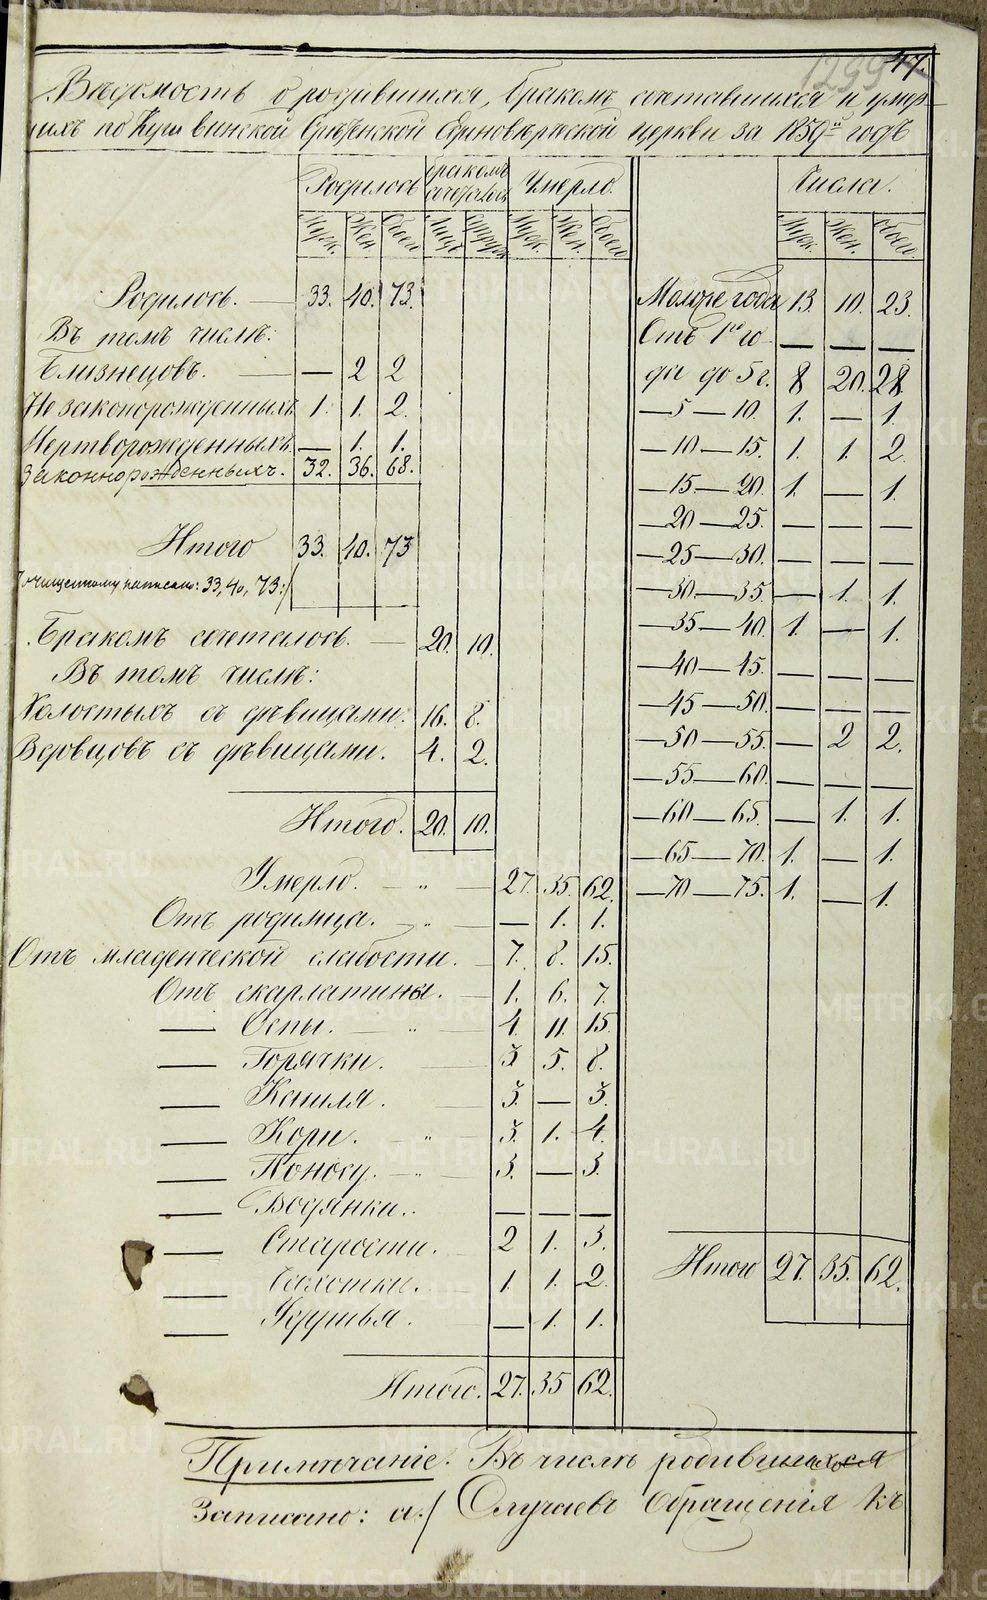 1299 47.
Вѣдомость о родившихся, бракомъ сочетавшихся и умер-
шихъ по Кушвинской Срѣтенской Единовѣрческой церкви за 1859й годъ
Родилось бракомъ сочеталось Умерло. Числа.
Муж. Жен. Обоего Лицъ Муж. Жен. Обоего Муж. Жен. Обоего
Родилось. 33. 40. 73.
Въ томъ числѣ:
Близнецовъ. — 2 2
Незаконорожденныхъ 1. 1. 2.
Мертворожденныхъ — 1. 1.
Законнорожденныхъ. 32. 36. 68.
Итого 33. 40. 73
написано: 33, 40, 73:/
Бракомъ сочеталось. — 20. 10.
Въ томъ числѣ:
Холостыхъ съ дѣвицами. 16. 8.
Вдовцовъ съ дѣвицами. 4. 2.
Итого. 20. 10.
Умерло. — „ — 27. 35. 62.
Отъ родимца. — 1. 1.
Отъ младенческой слабости. 7. 8. 15.
Отъ скарлатины. 1. 6. 7.
— Оспы. 4. 11. 15.
— Горячки. 3 5. 8.
— Кашля. 3. — 3.
— Кори. 3. 1. 4.
— Поносу. 3. — 3.
— Водянки. — — —
— Старости. 2 1. 3.
— Чахотки. 1. 1. 2.
— Удушья. — 1. 1.
Итого. 27. 35 62.
Моложе года 13. 10. 23.
Отъ 1го го- — — —
да до 5 г. 8 20. 28
— 5 — 10. 1. — 1.
— 10 — 15. 1. 1. 2.
— 15. — 20. 1. — 1.
— 20 — 25. — — —
— 25 — 30. — — —
— 30 — 35. — 1. 1.
— 35 — 40. 1. — 1.
— 40 — 45. — — —
— 45 — 50. — — —
— 50 — 55. — 2 2.
— 55 — 60. — — —
— 60 — 65. — 1. 1.
— 65 — 70. 1. — 1.
— 70 — 75. 1. — 1.
Итого 27. 35. 62.
Примѣчаніе. Въ числѣ родившихся
Записано: а:/ Случаевъ обращенія къ
METRIKI.GASO-URAL.RU